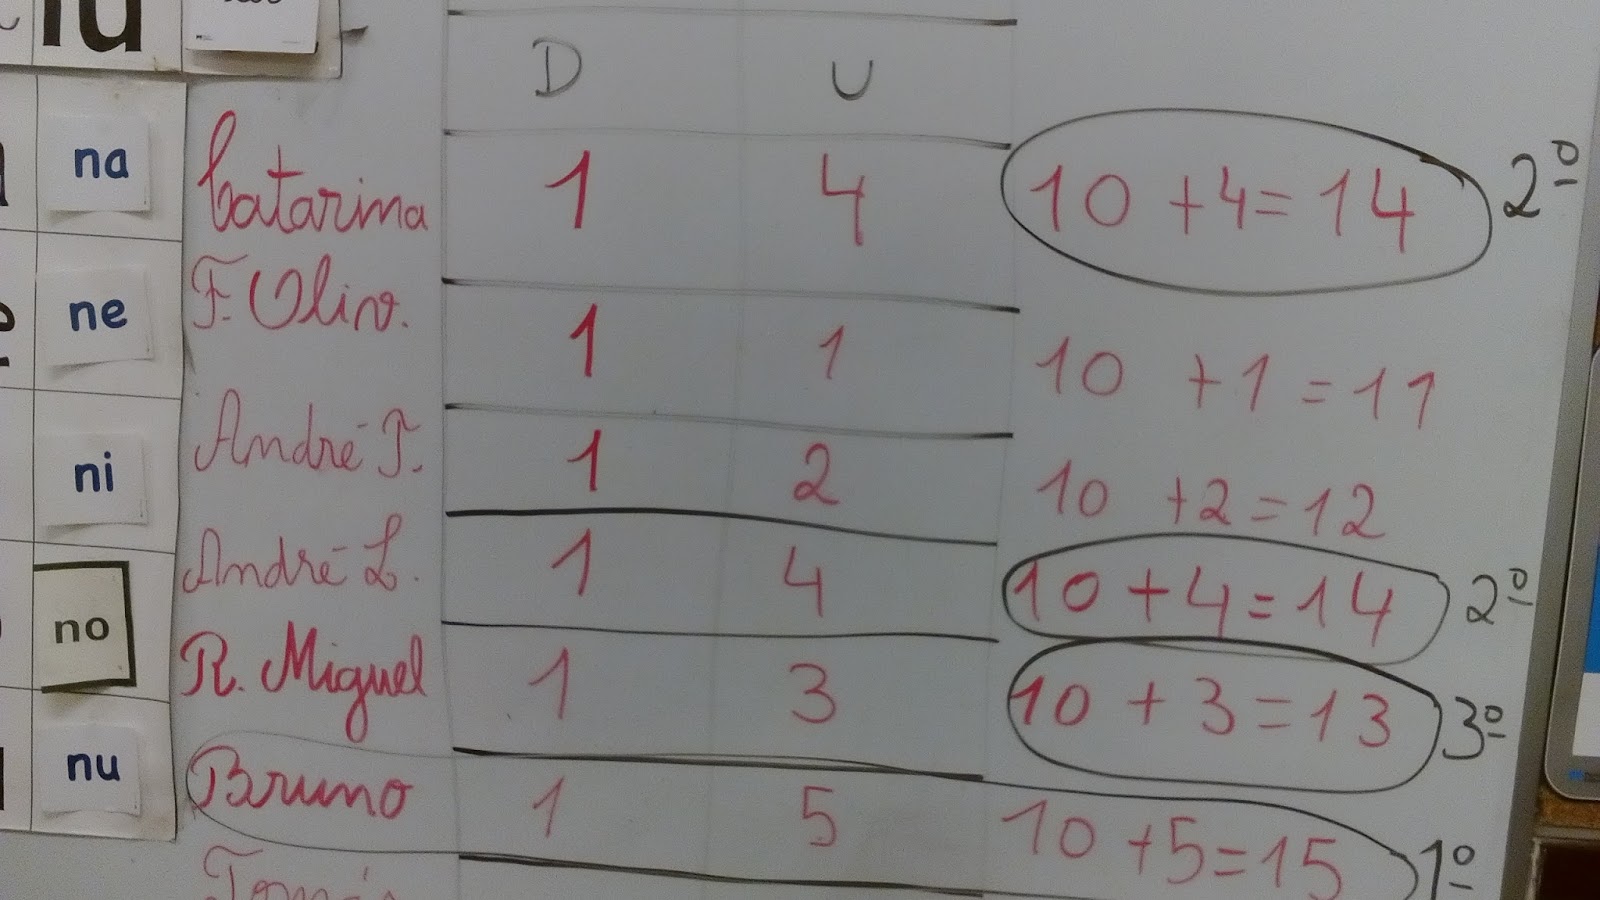 lu
D U
na
Catarina 1 4 10 + 4 = 14 2º
ne
F. Oliv. 1 1 10 + 1 = 11
ni
André T. 1 2 10 + 2 = 12
André L. 1 4 10 + 4 = 14 2º
no
R. Miguel 1 3 10 + 3 = 13 3º
nu
Bruno 1 5 10 + 5 = 15 1º